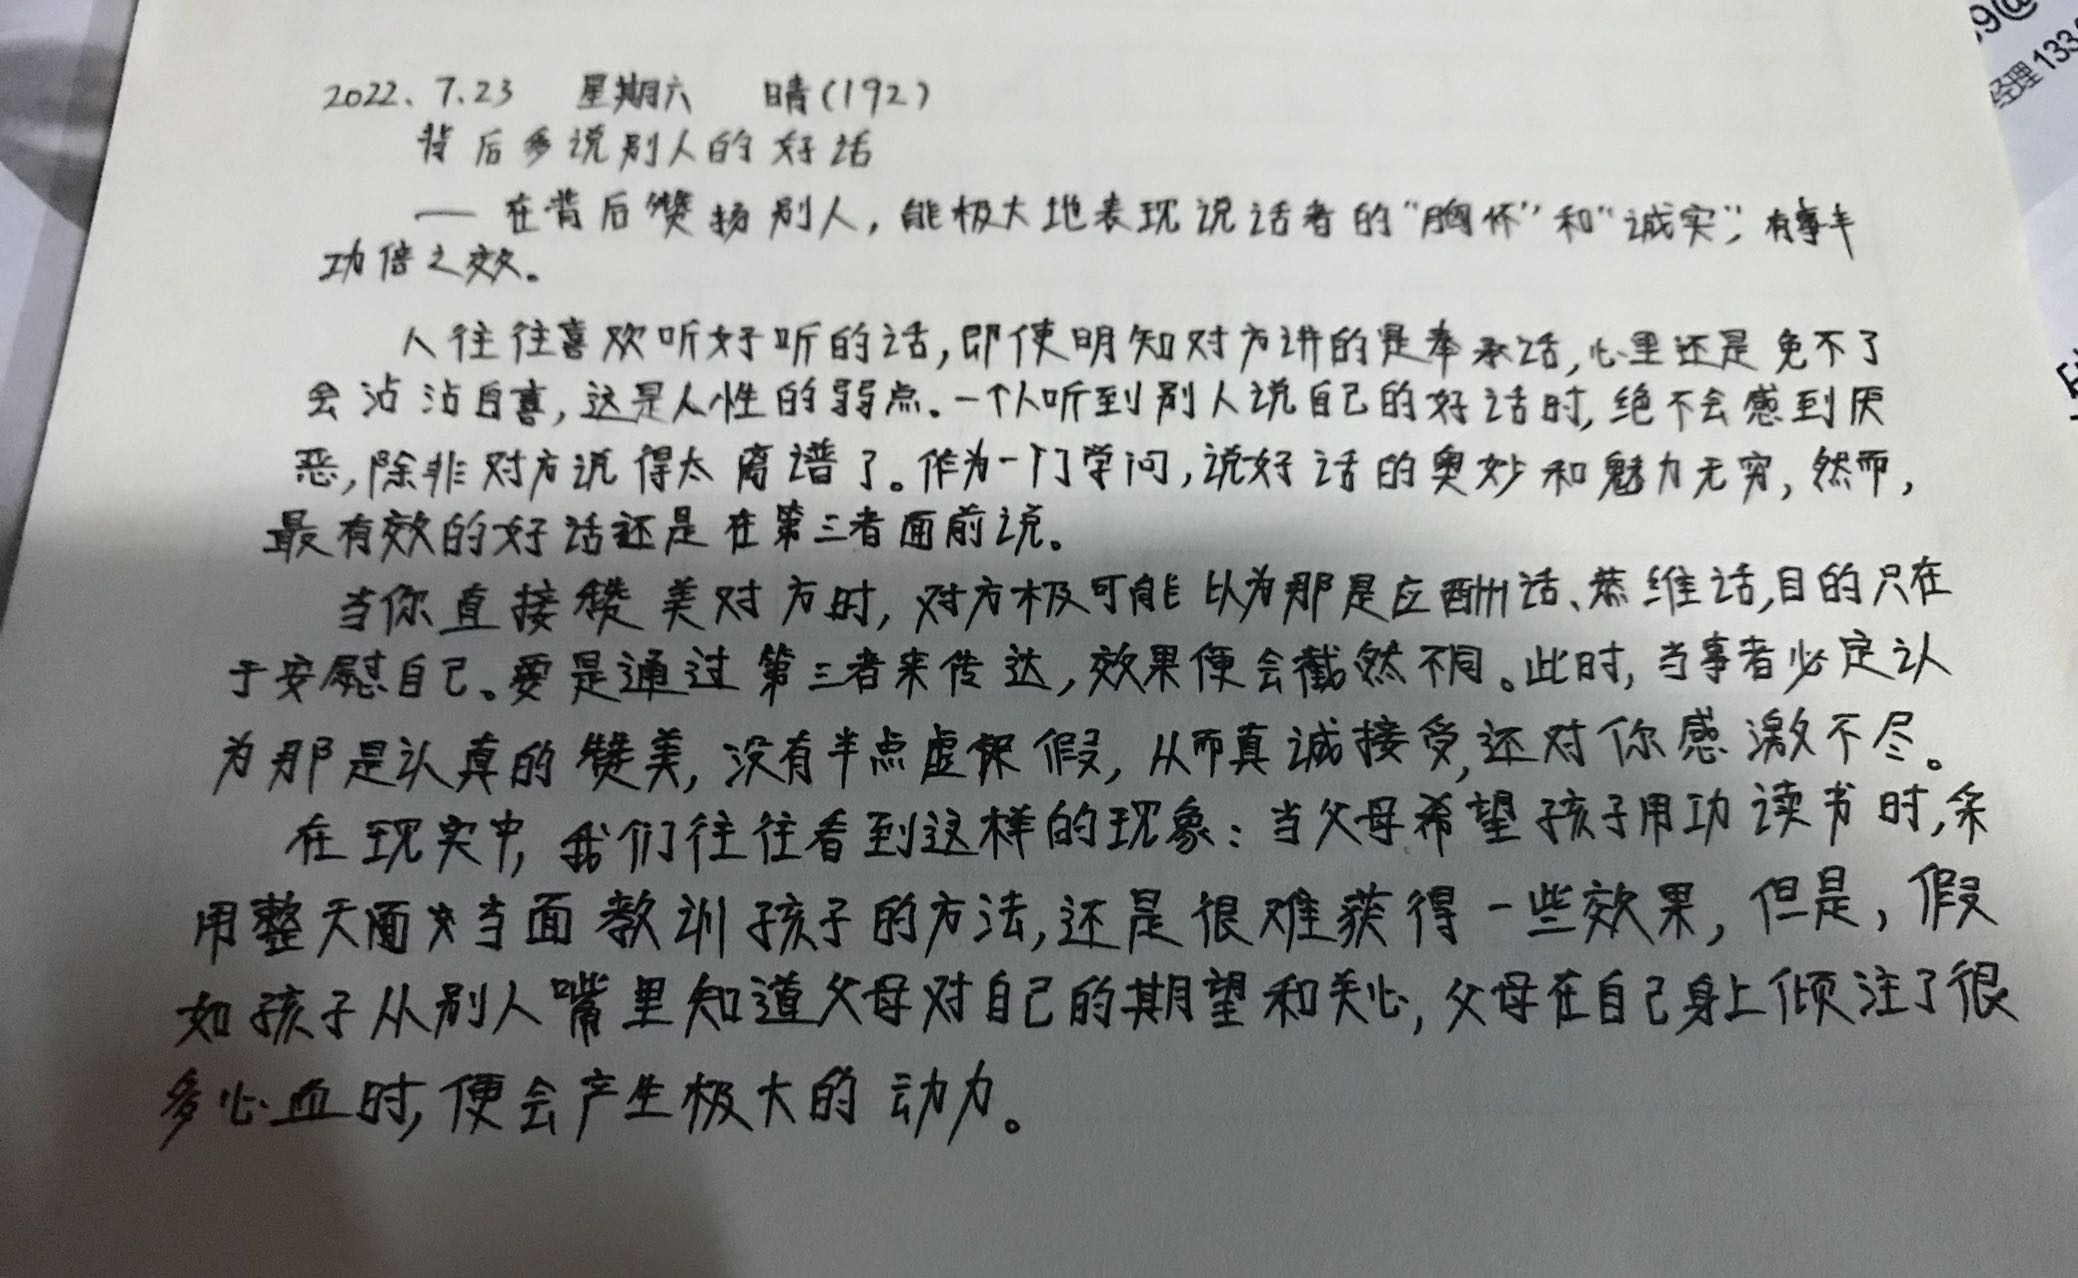 2022.7.23 星期六 晴(192)
背后多说别人的好话
— 在背后赞扬别人,能极大地表现说话者的“胸怀”和“诚实”,有事半
功倍之效。
人往往喜欢听好听的话,即使明知对方讲的是奉承话,心里还是免不了
会沾沾自喜,这是人性的弱点。一个人听到别人说自己的好话时,绝不会感到厌
恶,除非对方说得太离谱了。作为一门学问,说好话的奥妙和魅力无穷,然而,
最有效的好话还是在第三者面前说。
当你直接赞美对方时,对方极可能以为那是应酬话、恭维话,目的只在
于安慰自己。要是通过第三者来传达,效果便会截然不同。此时,当事者必定认
为那是认真的赞美,没有半点虚假,从而真诚接受,还对你感激不尽。
在现实中,我们往往看到这样的现象:当父母希望孩子用功读书时,采
用整天当面教训孩子的方法,还是很难获得一些效果,但是,假
如孩子从别人嘴里知道父母对自己的期望和关心,父母在自己身上倾注了很
多心血时,便会产生极大的动力。
9@
经理133